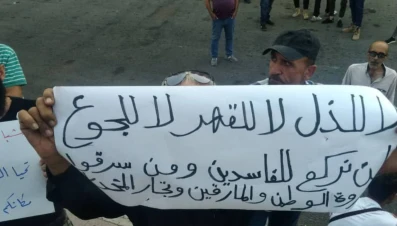 لا للذل لا للقهر لا للجوع
لن نركع للفاسدين ومن سرقوا
ثروة الوطن والمارقين وتجار
تبا